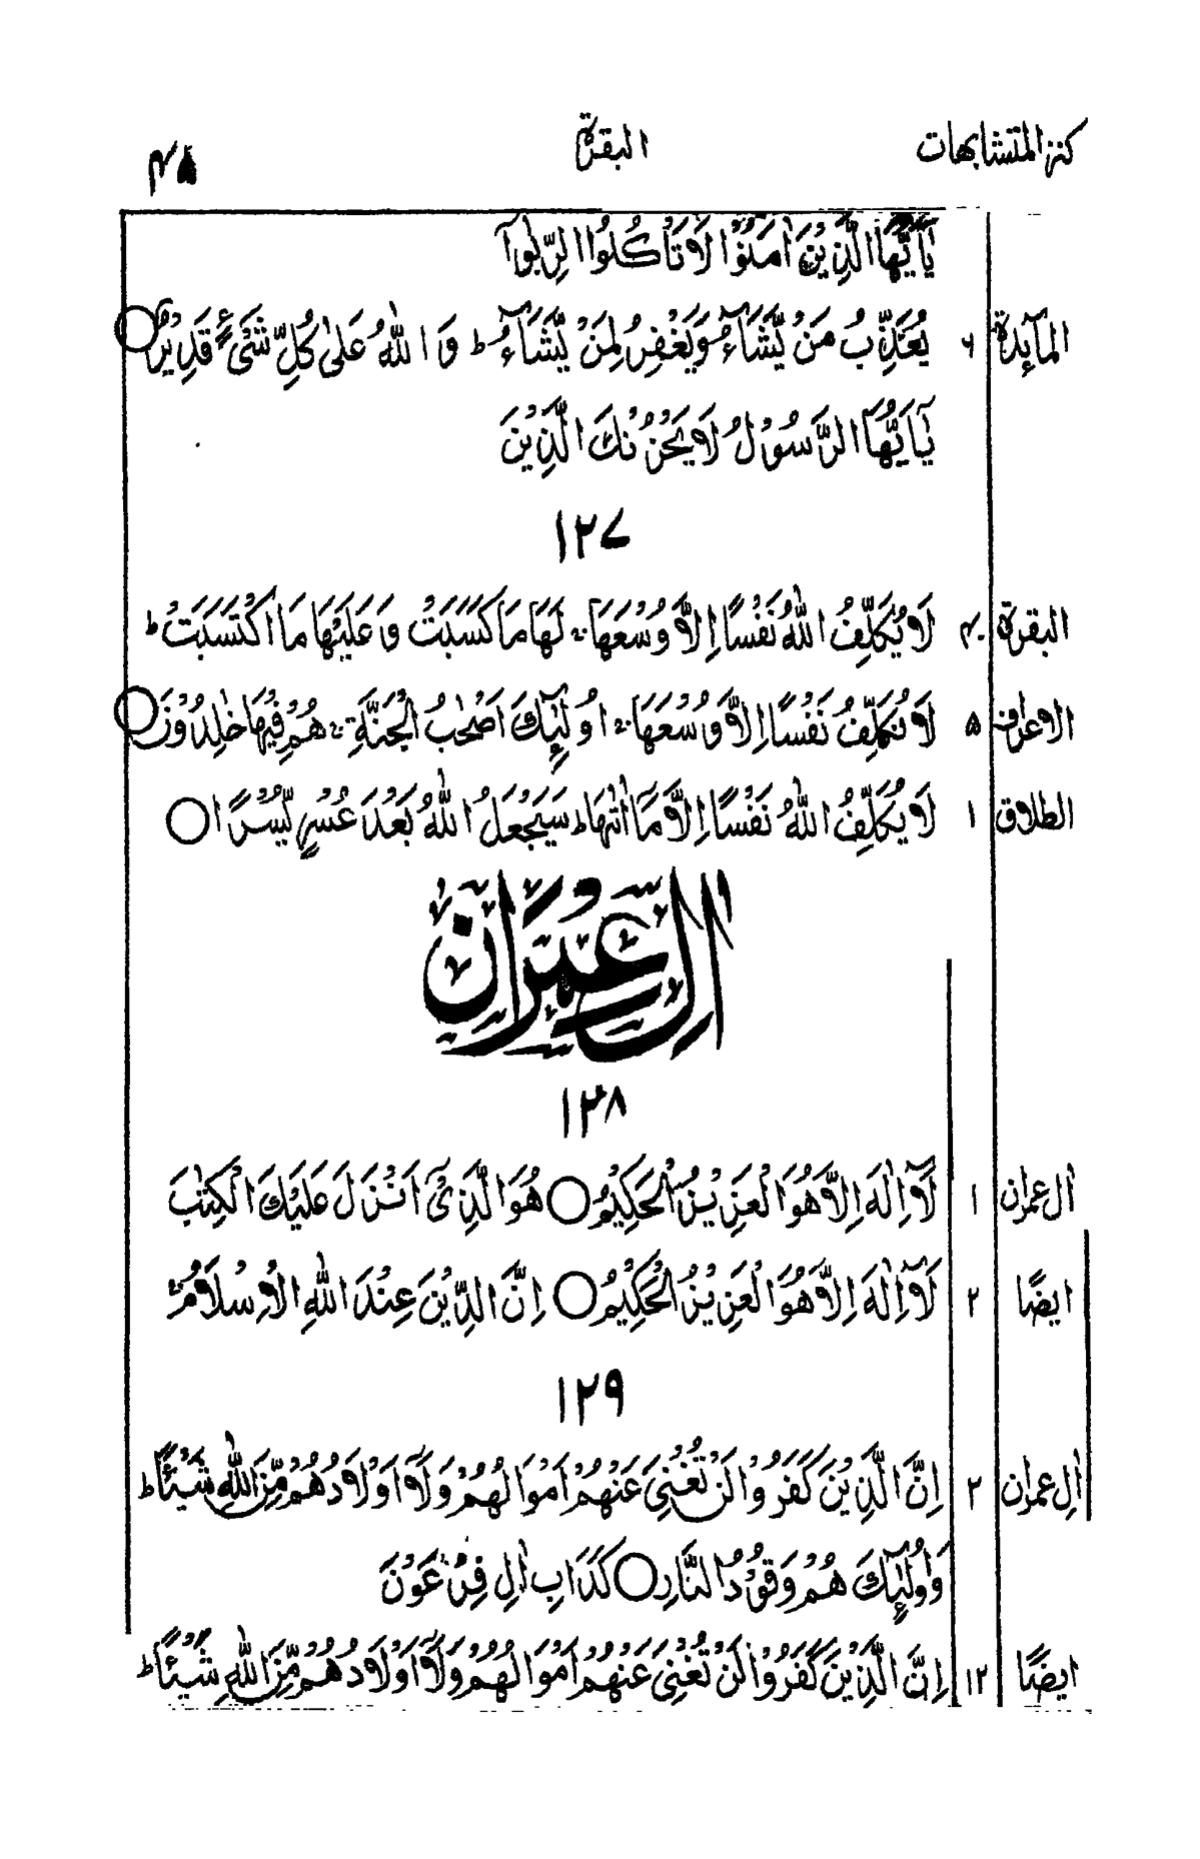 كنز المتشابهات البقرة ۴۵
يٰٓاَيُّهَا الَّذِيْنَ اٰمَنُوْا لَا تَاْكُلُوا الرِّبٰوٓا
المآئدة ۶ يُعَذِّبُ مَنْ يَّشَآءُ وَيَغْفِرُ لِمَنْ يَّشَآءُ ؕ وَ اللّٰهُ عَلٰى كُلِّ شَىْءٍ قَدِيْرٌ ○
يٰٓاَيُّهَا الرَّسُوْلُ لَا يَحْزُنْكَ الَّذِيْنَ
۱۲۷
البقرة ۴۰ لَا يُكَلِّفُ اللّٰهُ نَفْسًا اِلَّا وُسْعَهَا ؕ لَهَا مَا كَسَبَتْ وَ عَلَيْهَا مَا اكْتَسَبَتْ ؕ
الاعراف ۵ لَا نُكَلِّفُ نَفْسًا اِلَّا وُسْعَهَا ؗ اُولٰٓئِكَ اَصْحٰبُ الْجَنَّةِ ۚ هُمْ فِيْهَا خٰلِدُوْنَ ○
الطلاق ۱ لَا يُكَلِّفُ اللّٰهُ نَفْسًا اِلَّا مَآ اٰتٰىهَا ؕ سَيَجْعَلُ اللّٰهُ بَعْدَ عُسْرٍ يُّسْرًا ○
اٰلِ عِمْرَان
۱۲۸
اٰل عمران ۱ لَآ اِلٰهَ اِلَّا هُوَ الْعَزِيْزُ الْحَكِيْمُ ○ هُوَ الَّذِىْٓ اَنْزَلَ عَلَيْكَ الْكِتٰبَ
ايضًا ۲ لَآ اِلٰهَ اِلَّا هُوَ الْعَزِيْزُ الْحَكِيْمُ ○ اِنَّ الدِّيْنَ عِنْدَ اللّٰهِ الْاِسْلَامُ
۱۲۹
اٰل عمران ۲ اِنَّ الَّذِيْنَ كَفَرُوْا لَنْ تُغْنِىَ عَنْهُمْ اَمْوَالُهُمْ وَلَآ اَوْلَادُهُمْ مِّنَ اللّٰهِ شَيْئًا ؕ
وَاُولٰٓئِكَ هُمْ وَقُوْدُ النَّارِ ○ كَدَاْبِ اٰلِ فِرْعَوْنَ
ايضًا ۱۲ اِنَّ الَّذِيْنَ كَفَرُوْا لَنْ تُغْنِىَ عَنْهُمْ اَمْوَالُهُمْ وَلَآ اَوْلَادُهُمْ مِّنَ اللّٰهِ شَيْئًا ؕ